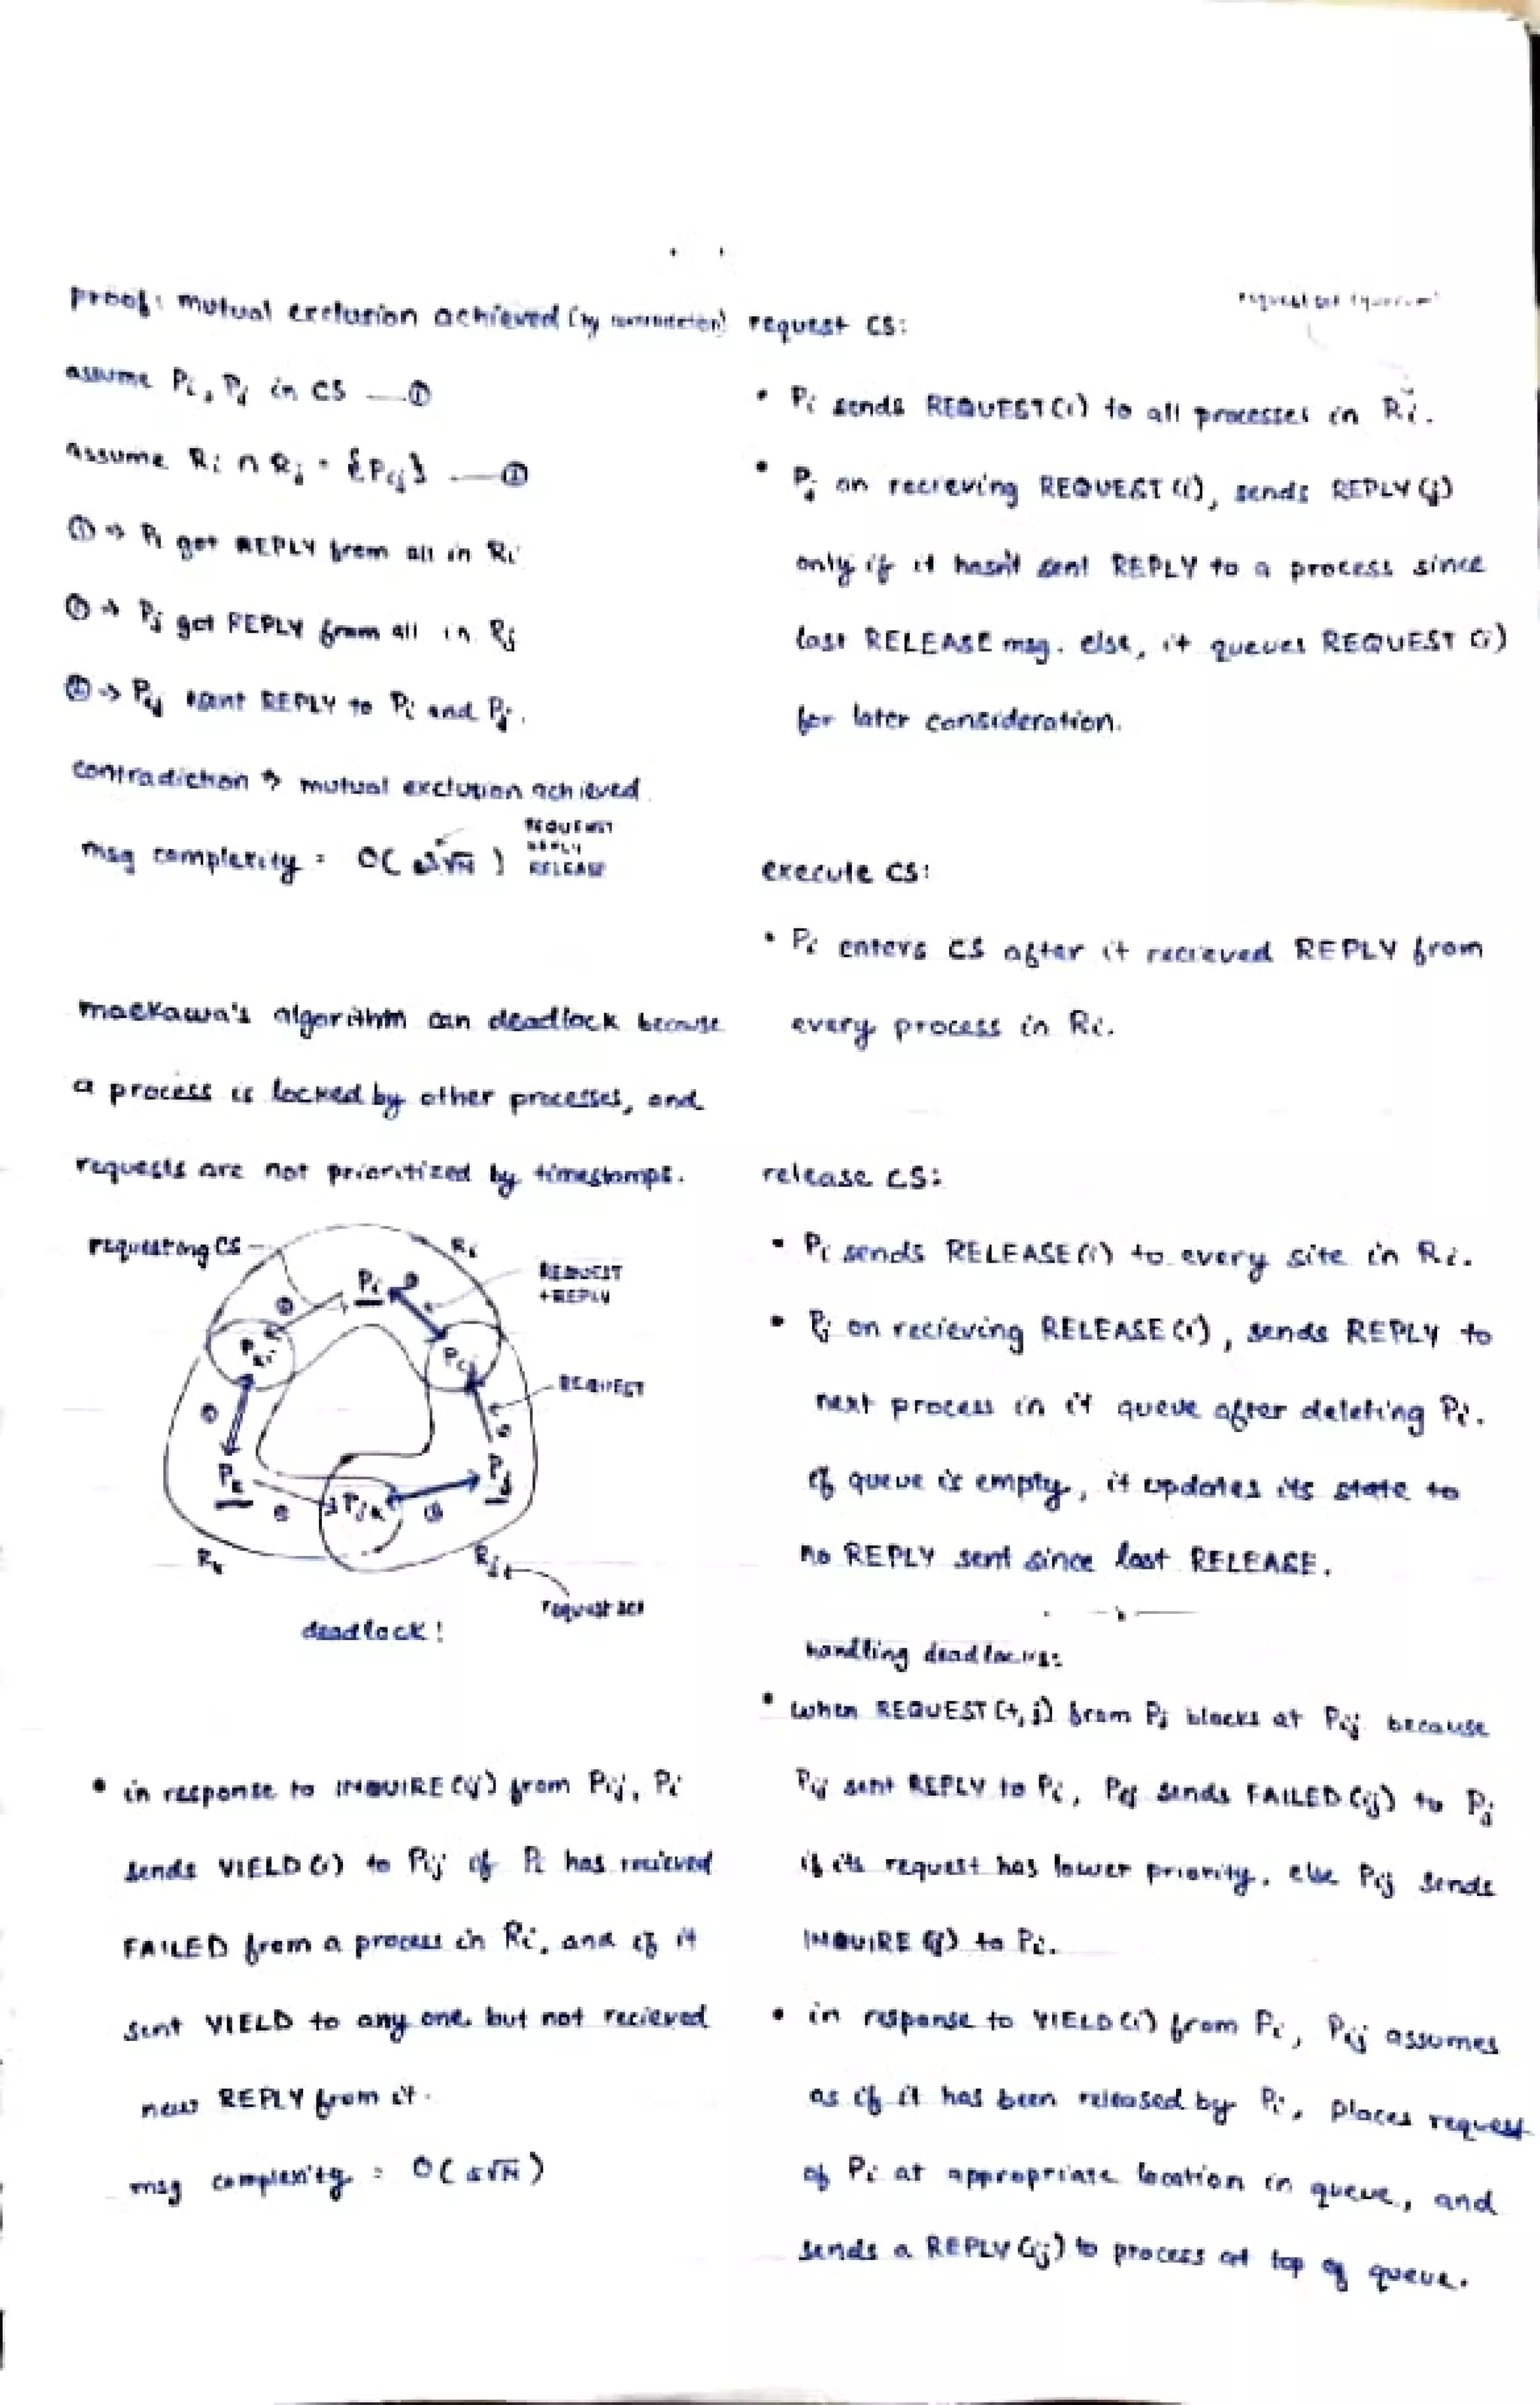 proof: mutual exclusion achieved (by contradiction)
assume Pi, Pj in CS —①
assume Ri ∩ Rj = {Pij} —②
① ⇒ Pi got REPLY from all in Ri
① ⇒ Pj got REPLY from all in Rj
② ⇒ Pij sent REPLY to Pi and Pj.
contradiction ⇒ mutual exclusion achieved
msg complexity = O( 3√N )
REQUEST
REPLY
RELEASE
maekawa's algorithm can deadlock because
a process is locked by other processes, and
requests are not prioritized by timestamps.
requesting CS
Ri
Pi
REQUEST
+REPLY
Pki
Pij
REQUEST
Pk
Pjk
Pj
Rk
Rj
request set
deadlock!
• in response to INQUIRE (ij) from Pij, Pi
sends YIELD (i) to Pij if Pi has recieved
FAILED from a process in Ri, and if it
sent YIELD to any one, but not recieved
new REPLY from it.
msg complexity = O( 5√N )
request set (quorum)
request CS:
• Pi sends REQUEST(i) to all processes in Ri.
• Pj on recieving REQUEST (i), sends REPLY (j)
only if it hasn't sent REPLY to a process since
last RELEASE msg. else, it queues REQUEST (i)
for later consideration.
execute CS:
• Pi enters CS after it recieved REPLY from
every process in Ri.
release CS:
• Pi sends RELEASE(i) to every site in Ri.
• Pj on recieving RELEASE (i), sends REPLY to
next process in it queue after deleting Pi.
if queue is empty, it updates its state to
no REPLY sent since last RELEASE.
handling deadlocks:
• when REQUEST (t, j) from Pj blocks at Pij because
Pij sent REPLY to Pi, Pij sends FAILED (ij) to Pj
if its request has lower priority, else Pij sends
INQUIRE (ij) to Pi.
• in response to YIELD (i) from Pi, Pij assumes
as if it has been released by Pi, places request
of Pi at appropriate location in queue, and
sends a REPLY (ij) to process at top of queue.